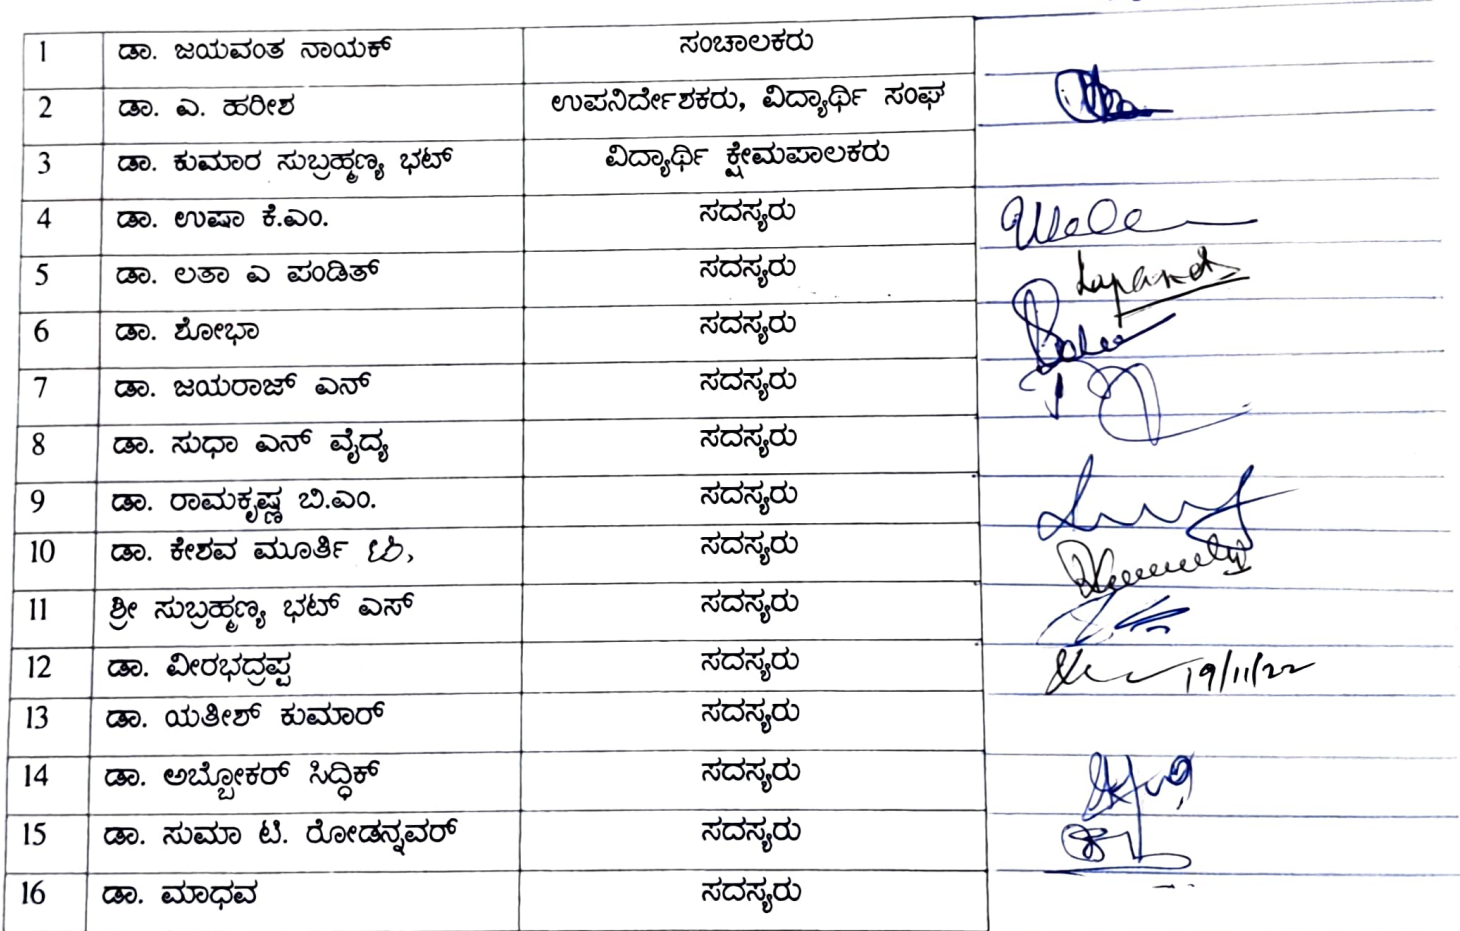 1 ಡಾ. ಜಯವಂತ ನಾಯಕ್ ಸಂಚಾಲಕರು
2 ಡಾ. ಎ. ಹರೀಶ ಉಪನಿರ್ದೇಶಕರು, ವಿದ್ಯಾರ್ಥಿ ಸಂಘ
3 ಡಾ. ಕುಮಾರ ಸುಬ್ರಹ್ಮಣ್ಯ ಭಟ್ ವಿದ್ಯಾರ್ಥಿ ಕ್ಷೇಮಪಾಲಕರು
4 ಡಾ. ಉಷಾ ಕೆ.ಎಂ. ಸದಸ್ಯರು
5 ಡಾ. ಲತಾ ಎ ಪಂಡಿತ್ ಸದಸ್ಯರು
6 ಡಾ. ಶೋಭಾ ಸದಸ್ಯರು
7 ಡಾ. ಜಯರಾಜ್ ಎನ್ ಸದಸ್ಯರು
8 ಡಾ. ಸುಧಾ ಎನ್ ವೈದ್ಯ ಸದಸ್ಯರು
9 ಡಾ. ರಾಮಕೃಷ್ಣ ಬಿ.ಎಂ. ಸದಸ್ಯರು
10 ಡಾ. ಕೇಶವ ಮೂರ್ತಿ ಸದಸ್ಯರು
11 ಶ್ರೀ ಸುಬ್ರಹ್ಮಣ್ಯ ಭಟ್ ಎಸ್ ಸದಸ್ಯರು
12 ಡಾ. ವೀರಭದ್ರಪ್ಪ ಸದಸ್ಯರು 19/11/22
13 ಡಾ. ಯತೀಶ್ ಕುಮಾರ್ ಸದಸ್ಯರು
14 ಡಾ. ಅಬ್ಬೋಕರ್ ಸಿದ್ಧಿಕ್ ಸದಸ್ಯರು
15 ಡಾ. ಸುಮಾ ಟಿ. ರೋಡನ್ನವರ್ ಸದಸ್ಯರು
16 ಡಾ. ಮಾಧವ ಸದಸ್ಯರು